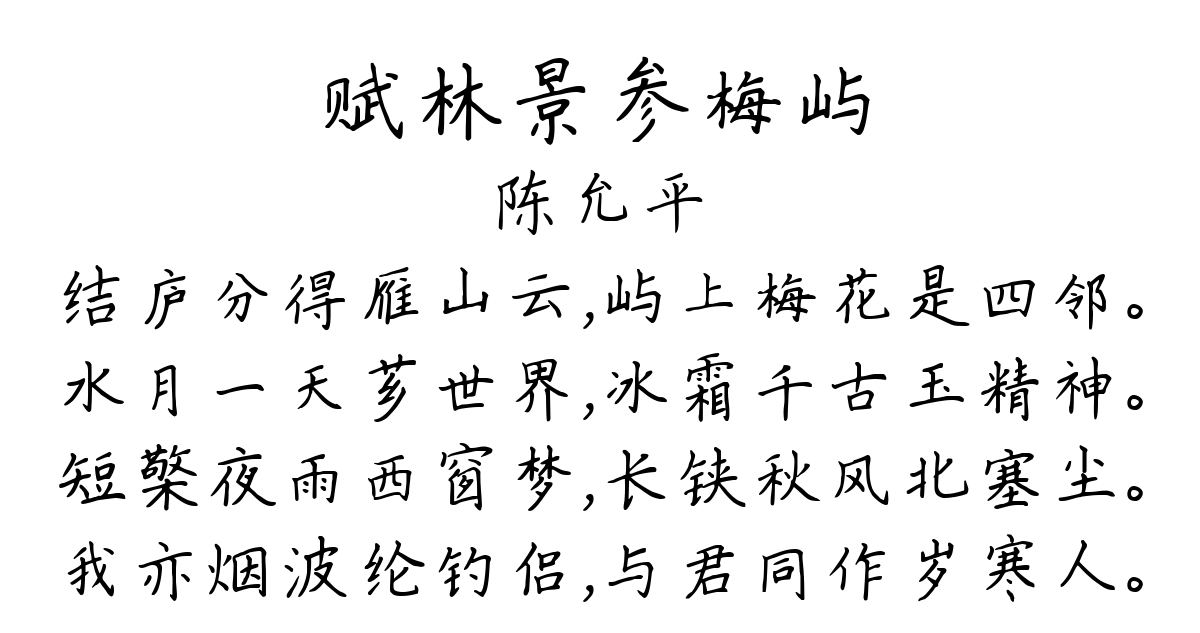 赋林景参梅屿
陈允平
结庐分得雁山云,屿上梅花是四邻。
水月一天芗世界,冰霜千古玉精神。
短檠夜雨西窗梦,长铗秋风北塞尘。
我亦烟波纶钓侣,与君同作岁寒人。